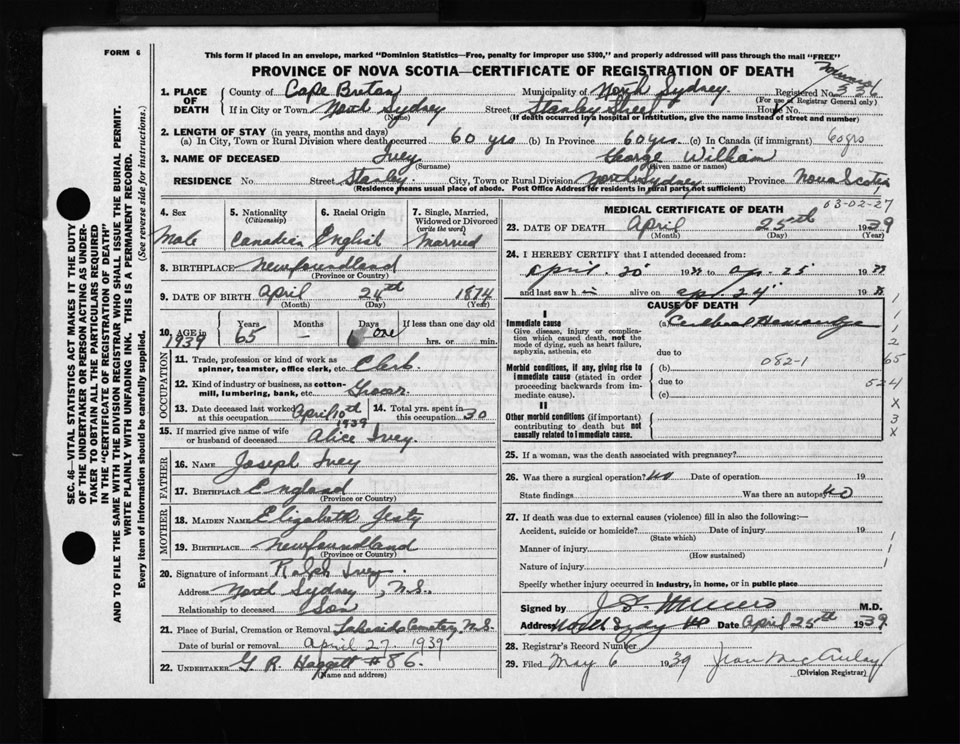 FORM 6
This form if placed in an envelope, marked "Dominion Statistics—Free, penalty for improper use $300," and properly addressed will pass through the mail "FREE"
PROVINCE OF NOVA SCOTIA—CERTIFICATE OF REGISTRATION OF DEATH
SEC. 46—VITAL STATISTICS ACT MAKES IT THE DUTY
OF THE UNDERTAKER OR PERSON ACTING AS UNDER-
TAKER TO OBTAIN ALL THE PARTICULARS REQUIRED
IN THE "CERTIFICATE OF REGISTRATION OF DEATH"
AND TO FILE THE SAME WITH THE DIVISION REGISTRAR WHO SHALL ISSUE THE BURIAL PERMIT.
WRITE PLAINLY WITH UNFADING INK. THIS IS A PERMANENT RECORD.
Every item of information should be carefully supplied. (See reverse side for instructions.)
1. PLACE OF DEATH
County of Cape Breton Municipality of North Sydney Registered No. 336
(For use of Registrar General only)
If in City or Town North Sydney Street Stanley Street House No.
(Name) (If death occurred in a hospital or institution, give the name instead of street and number)
2. LENGTH OF STAY (in years, months and days)
(a) In City, Town or Rural Division where death occurred 60 yrs (b) In Province 60 yrs. (c) In Canada (if immigrant) 60 yrs
3. NAME OF DECEASED Ivey George William
(Surname) (Given name or names)
RESIDENCE No. Street Stanley City, Town or Rural Division North Sydney Province Nova Scotia
(Residence means usual place of abode. Post Office Address for residents in rural parts not sufficient)
4. Sex Male
5. Nationality (Citizenship) Canadian
6. Racial Origin English
7. Single, Married, Widowed or Divorced (write the word) Married
8. BIRTHPLACE Newfoundland
(Province or Country)
9. DATE OF BIRTH April 24th 1874
(Month) (Day) (Year)
10. AGE in 1939 Years 65 Months – Days one If less than one day old hrs. or min.
OCCUPATION
11. Trade, profession or kind of work as spinner, teamster, office clerk, etc. Clerk.
12. Kind of industry or business, as cotton-mill, lumbering, bank, etc.
13. Date deceased last worked at this occupation April 10th 1939
14. Total yrs. spent in this occupation 30
15. If married give name of wife or husband of deceased Alice Ivey.
FATHER
16. NAME Joseph Ivey
17. BIRTHPLACE England
(Province or Country)
MOTHER
18. MAIDEN NAME Elizabeth Jesty
19. BIRTHPLACE Newfoundland
(Province or Country)
20. Signature of informant Ralph Ivey.
Address North Sydney, N.S.
Relationship to deceased Son
21. Place of Burial, Cremation or Removal Lakeside Cemetery, N.S.
Date of burial or removal April 27, 1939
22. UNDERTAKER G. R. Haggett #86.
(Name and address)
MEDICAL CERTIFICATE OF DEATH
03-02-27
23. DATE OF DEATH April 25th 1939
(Month) (Day) (Year)
24. I HEREBY CERTIFY that I attended deceased from
April. 20 1939 to Ap. 25 1939
and last saw h alive on Apr. 24 19
CAUSE OF DEATH
I
Immediate cause (a) Cerebral Hemorrhage
Give disease, injury or complication which caused death, not the mode of dying, such as heart failure, asphyxia, asthenia, etc
due to
Morbid conditions, if any, giving rise to immediate cause (stated in order proceeding backwards from immediate cause).
(b) 082-1
due to
(c)
II
Other morbid conditions (if important) contributing to death but not causally related to immediate cause.
1
1
2
65
524
X
3
X
25. If a woman, was the death associated with pregnancy?
26. Was there a surgical operation? No Date of operation 19
State findings Was there an autopsy No
27. If death was due to external causes (violence) fill in also the following:—
Accident, suicide or homicide? Date of injury 19
(State which)
Manner of injury
(How sustained)
Nature of injury
Specify whether injury occurred in industry, in home, or in public place
Signed by M.D.
Address North Sydney Date April 25th 1939
28. Registrar's Record Number
29. Filed May 6 1939 Jean MacAulay
(Division Registrar)